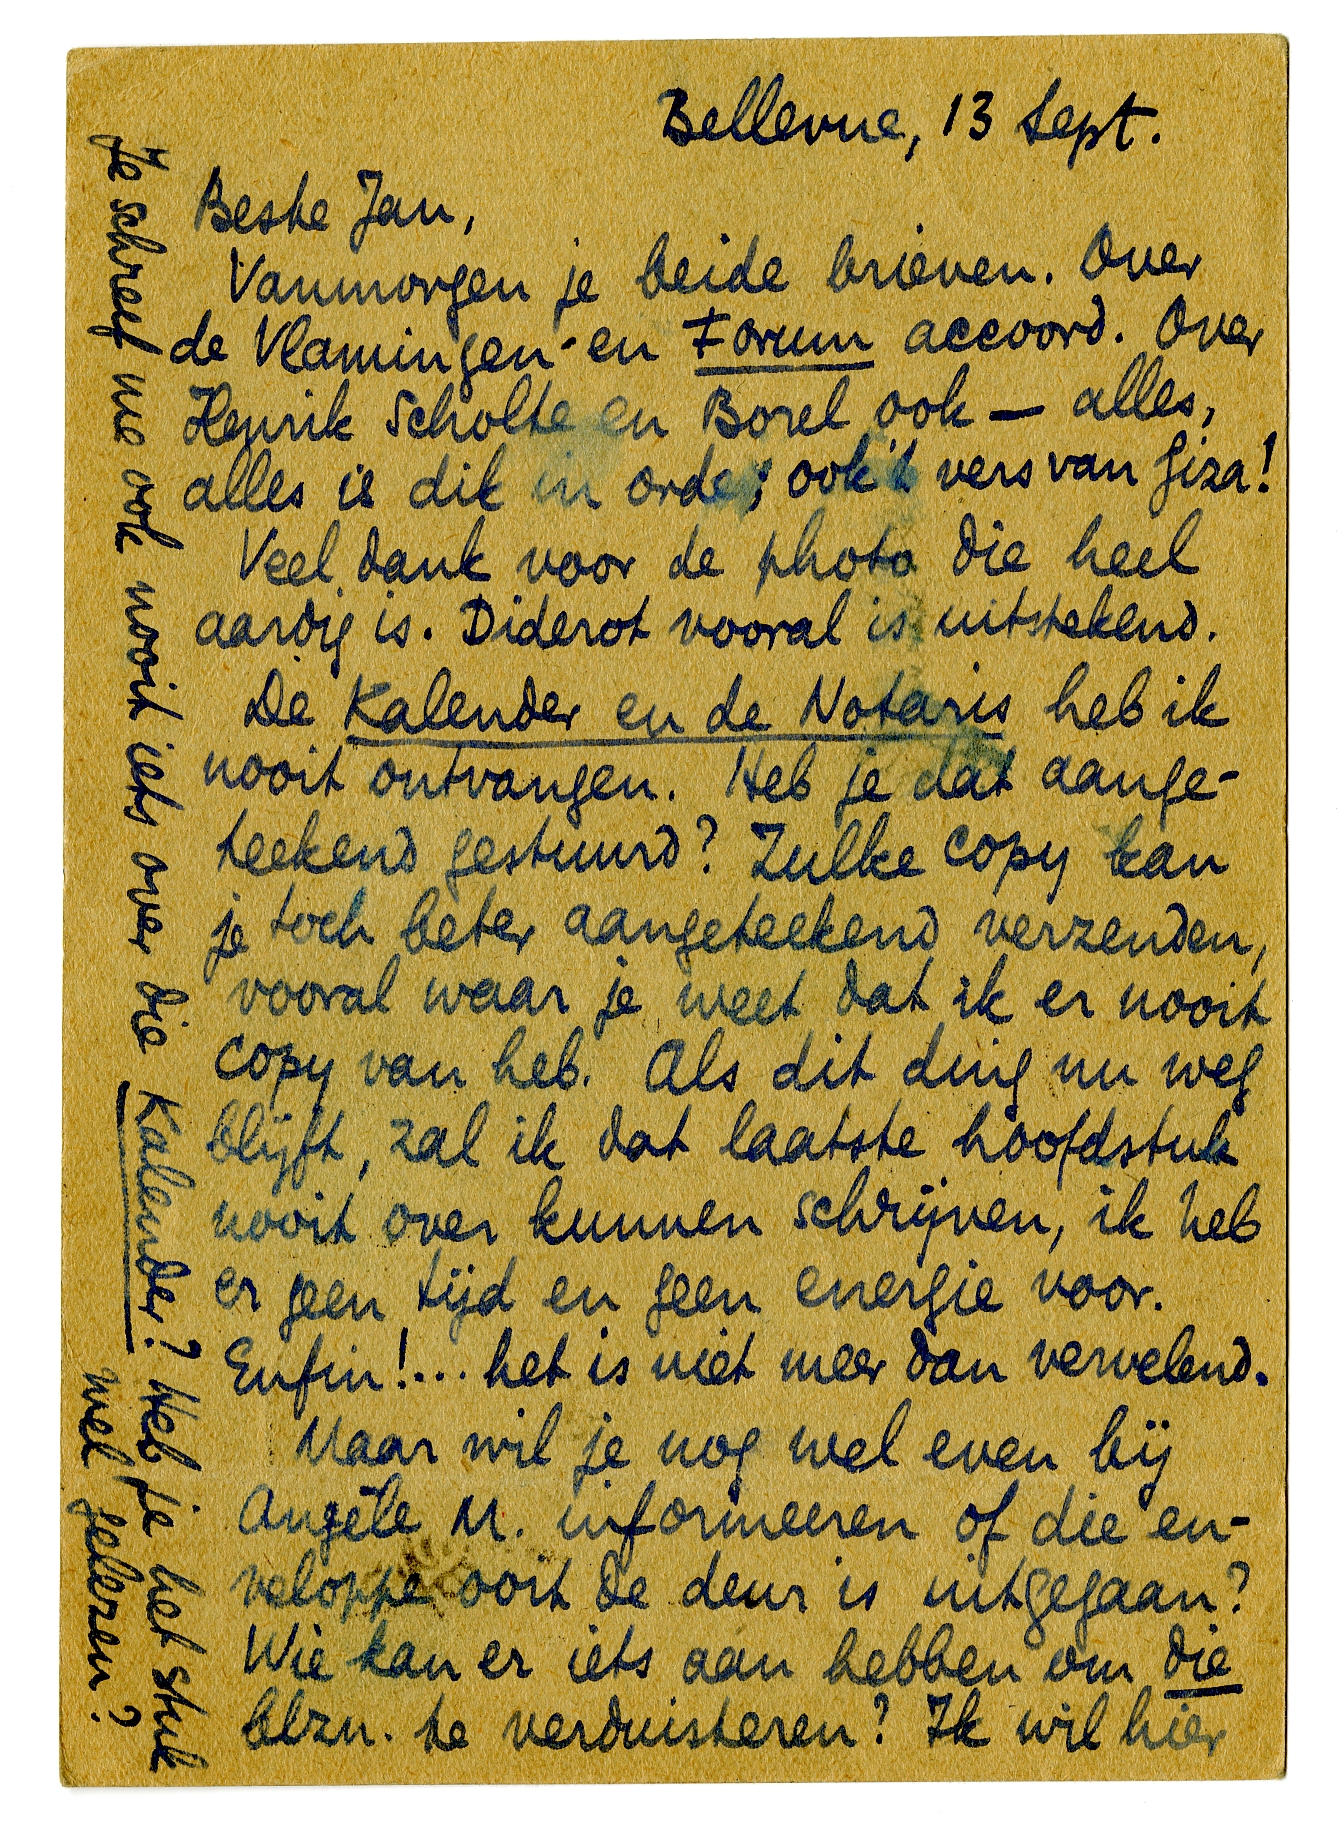 Bellevue, 13 Sept.
Beste Jan,
Vanmorgen je beide brieven. Over
de Vlamingen en Forum accoord. Over
Henrik Scholte en Borel ook — alles,
alles is dik in orde; ook 't vers van Giza!
Veel dank voor de photo die heel
aardig is. Diderot vooral is uitstekend.
De Kalender en de Notaris heb ik
nooit ontvangen. Heb je dat aange-
teekend gestuurd? Zulke copy kan
je toch beter aangeteekend verzenden,
vooral waar je weet dat ik er nooit
copy van heb. Als dit ding nu weg
blijft, zal ik dat laatste hoofdstuk
nooit over kunnen schrijven, ik heb
er geen tijd en geen energie voor.
Enfin!... het is niet meer dan vervelend.
Maar wil je nog wel even bij
Angèle M. informeeren of die en-
veloppe ooit de deur is uitgegaan?
Wie kan er iets aan hebben om die
blzn. te verduisteren? Ik wil hier
Je schreef me ook nooit iets over die Kalender? Heb je het stuk
wel gelezen?